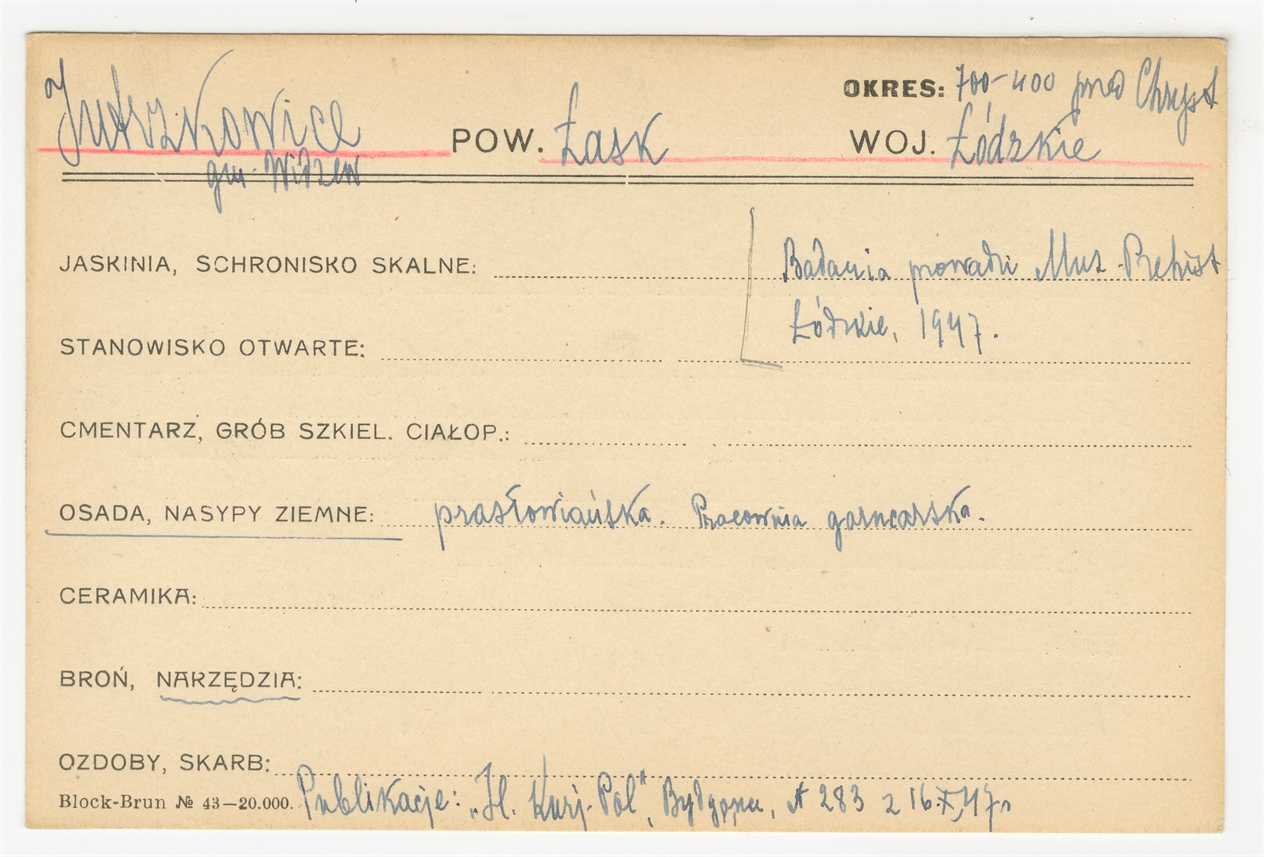 OKRES: 700-400 przed Chryst
Jutrzkowice POW. Łask WOJ. Łódzkie
gm. Widzew
JASKINIA, SCHRONISKO SKALNE: Badania prowadzi Muz. Prehist
Łódzkie, 1947.
STANOWISKO OTWARTE:
CMENTARZ, GRÓB SZKIEL. CIAŁOP.:
OSADA, NASYPY ZIEMNE: prasłowiańska. Pracownia garncarska.
CERAMIKA:
BROŃ, NARZĘDZIA:
OZDOBY, SKARB:
Block-Brun № 43—20.000. Publikacje: „Il. Kurj. Pol", Bydgoszcz, 283 z 16.X.47 r